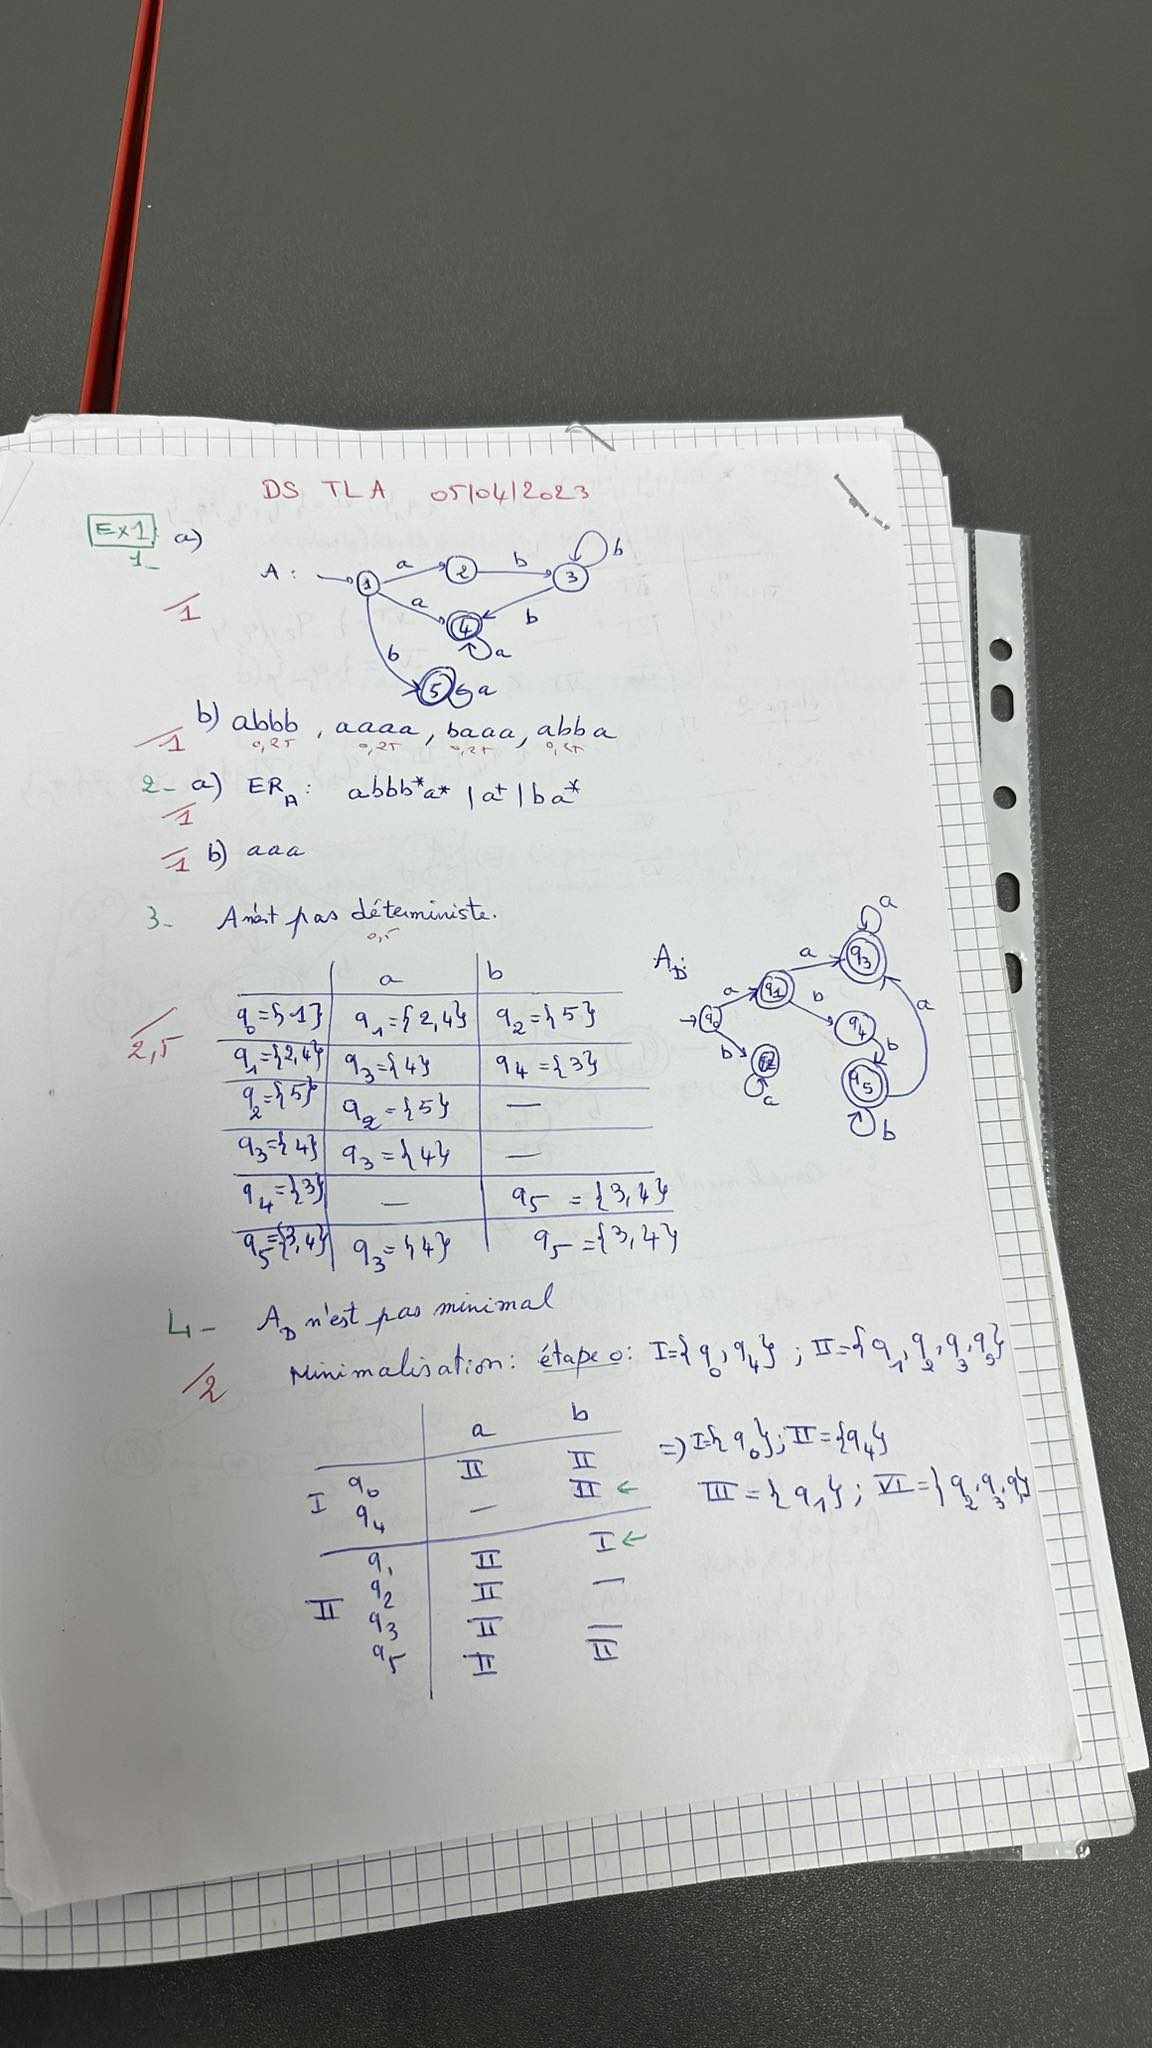 DS TLA 05/04/2023
Ex1
1- a)
A: 1 a 2 b 3 b
a 4 b a
b 5 a
/1
b) abbb, aaaa, baaa, abba
/1 0,25 0,25 0,25 0,25
2- a) ER_A : abbb*a* | a+ | ba*
/1
/1 b) aaa
3- A n'est pas déterministe.
0,5
/2,5
a b
q0={1} q1={2,4} q2={5}
q1={2,4} q3={4} q4={3}
q2={5} q2={5} —
q3={4} q3={4} —
q4={3} — q5={3,4}
q5={3,4} q3={4} q5={3,4}
A_D:
q0 a q1 a q3 a
b q4 b q5 b a
b q2 a
4- A_D n'est pas minimal
/2 Minimalisation: étape 0: I={q0,q4} ; II={q1,q2,q3,q5}
a b
I q0 II II
q4 — II ←
II q1 II I ←
q2 II —
q3 II —
q5 II II
=> I={q0}; II={q4}
III={q1}; VI={q2,q3,q5}